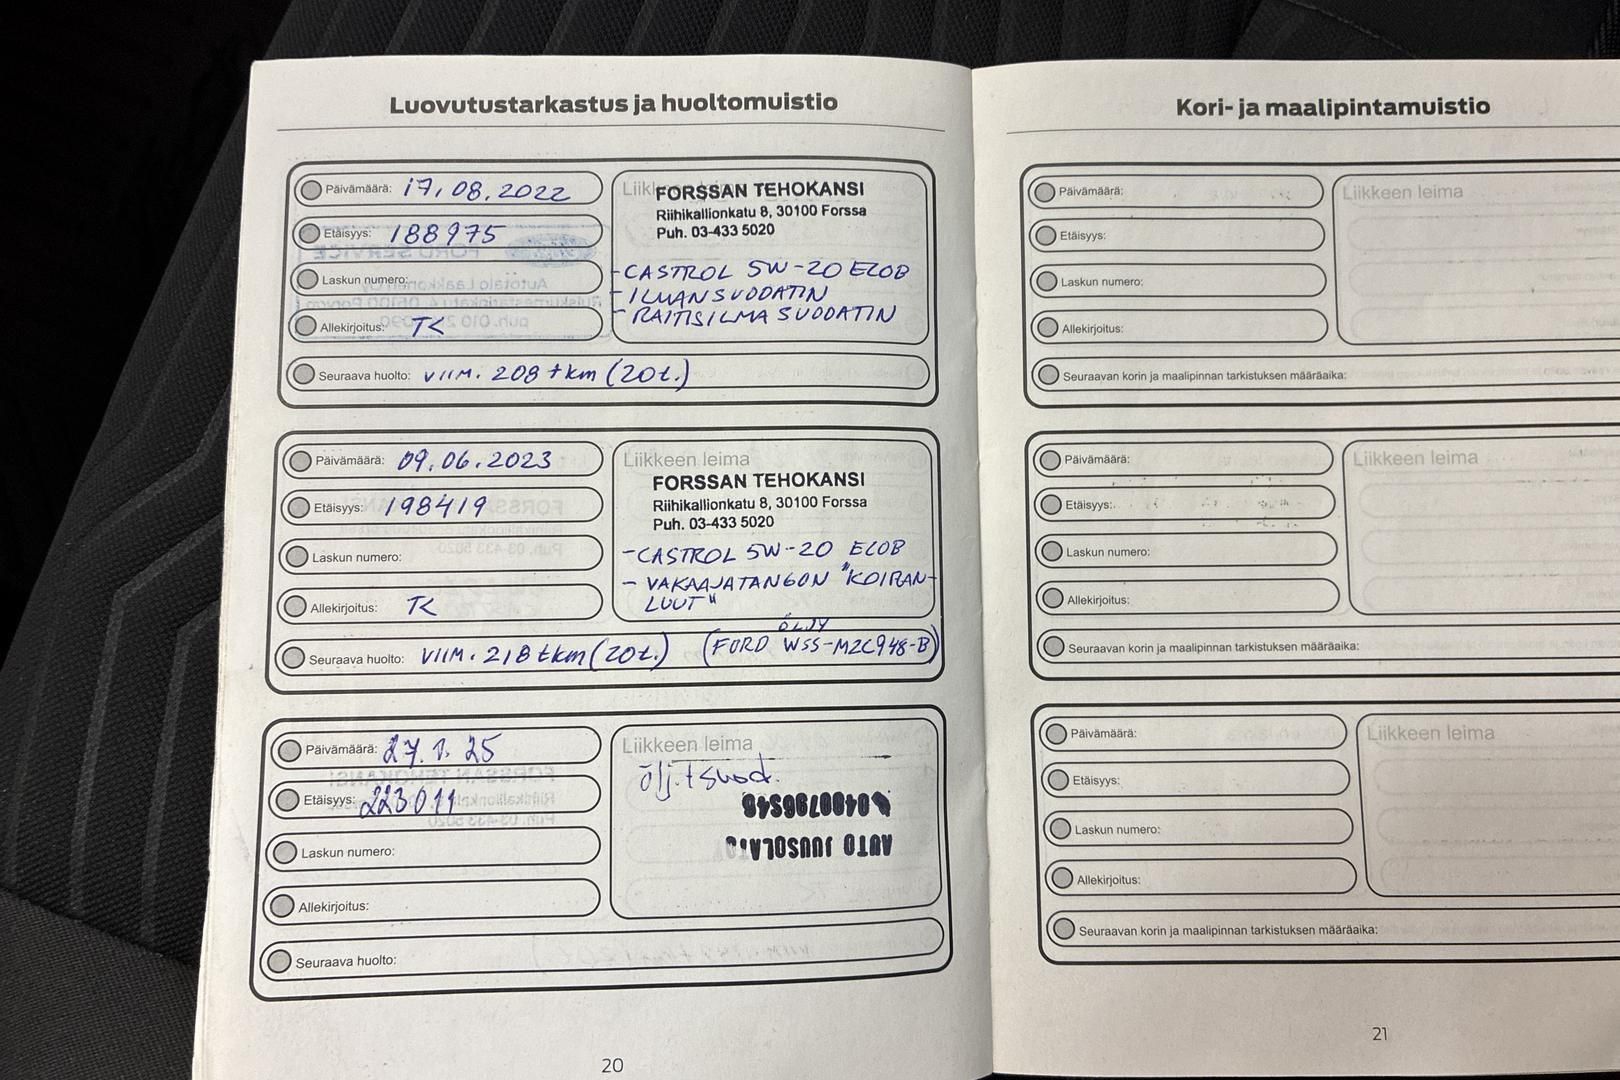 Luovutustarkastus ja huoltomuistio
Päivämäärä: 17.08.2022
Etäisyys: 188975
Laskun numero:
Allekirjoitus: TK
Liikkeen leima
FORSSAN TEHOKANSI
Riihikallionkatu 8, 30100 Forssa
Puh. 03-433 5020
- CASTROL 5W-20 ECOB
- ILMANSUODATIN
- RAITISILMASUODATIN
Seuraava huolto: VIIM. 208 tkm (20t.)
Päivämäärä: 09.06.2023
Etäisyys: 198419
Laskun numero:
Allekirjoitus: TK
Liikkeen leima
FORSSAN TEHOKANSI
Riihikallionkatu 8, 30100 Forssa
Puh. 03-433 5020
- CASTROL 5W-20 ECOB
- VAKAAJATANGON "KOIRAN-
LUUT"
Seuraava huolto: VIIM. 218 tkm (20t.) (FORD ÖLJY WSS-M2C948-B)
Päivämäärä: 27. 25
Etäisyys: 223011
Laskun numero:
Allekirjoitus:
Liikkeen leima
öljy.+suod.
AUTO JUUSOLA
0400796546
Seuraava huolto:
20
Kori- ja maalipintamuistio
Päivämäärä:
Etäisyys:
Laskun numero:
Allekirjoitus:
Liikkeen leima
Seuraavan korin ja maalipinnan tarkistuksen määräaika:
Päivämäärä:
Etäisyys:
Laskun numero:
Allekirjoitus:
Liikkeen leima
Seuraavan korin ja maalipinnan tarkistuksen määräaika:
Päivämäärä:
Etäisyys:
Laskun numero:
Allekirjoitus:
Liikkeen leima
Seuraavan korin ja maalipinnan tarkistuksen määräaika:
21